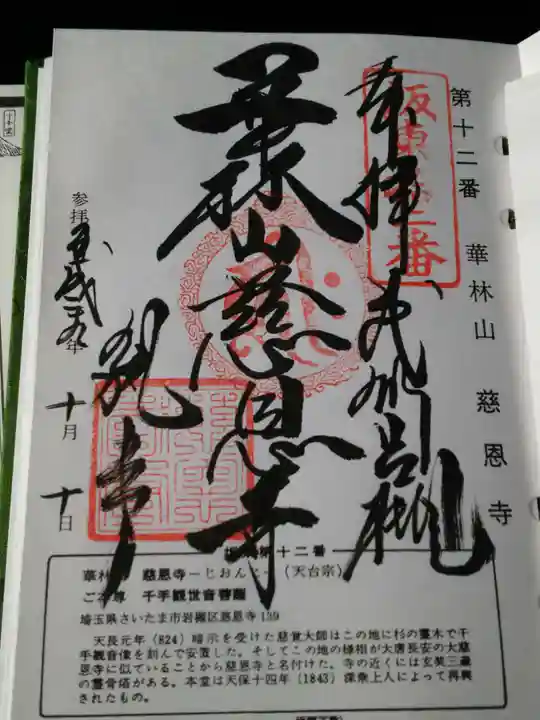 第十二番　華林山　慈恩寺
坂東十二番
奉拝　武州岩槻
華林山慈恩寺
別当
参拝　平成二九年　十月　十日
坂東第十二番
華林山　慈恩寺―じおんじ―（天台宗）
ご本尊　千手観世音菩薩
埼玉県さいたま市岩槻区慈恩寺139
天長元年（824）暗示を受けた慈覚大師はこの地に杉の霊木で千
手観音像を刻んで安置した。そしてこの地の様相が大唐長安の大慈
恩寺に似ていることから慈恩寺と名付けた。寺の近くには玄奘三蔵
の霊骨塔がある。本堂は天保十四年（1843）深乗上人によって再興
されたもの。